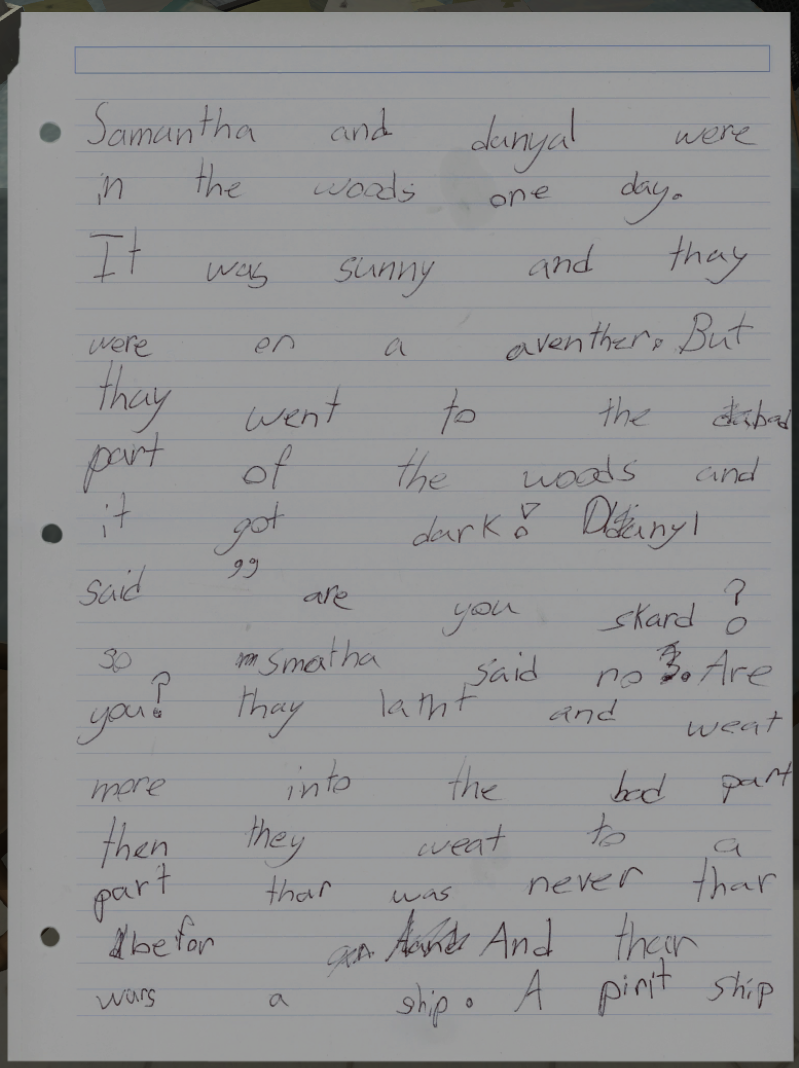 Samantha and danyal were
in the woods one day.
It was sunny and thay
were en a aventher. But
thay went to the bad
part of the woods and
it got dark! Danyl
said " are you skard?
so smatha said no. Are
you? thay latht and weat
more into the bad part
then they weat to a
part thar was never thar
befor And thar
wars a ship. A pirit ship